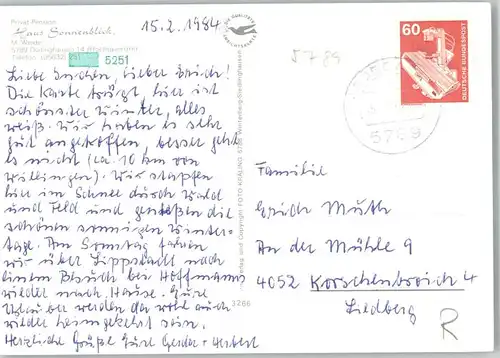 Privat-Pension
Haus Sonnenblick
15.2.1984
5251
Liebe Gruchen, lieber Erich!
Die Karte trügt, hier ist
schönster Winter, alles
weiß. Wir haben es sehr
gut angetroffen, besser geht
es nicht (ca. 10 km von
Willingen). Wir stapfen
hier im Schnee durch Wald
und Feld und genießen die
schönen sonnigen Winter-
tage. Am Sonntag fahren
wir über Lippstadt nach
einem Besuch bei Hoffmanns
wieder nach Hause. Eure
Urlauber werden da wohl auch
wieder heimgekehrt sein.
Herzliche Grüße Eure Gerda + Herbert
Verlag und Copyright FOTO
3766
5789
60
DEUTSCHE BUNDESPOST
Familie
Erich Muth
An der Mühle 9
4052 Korschenbroich 4
Liedberg
R